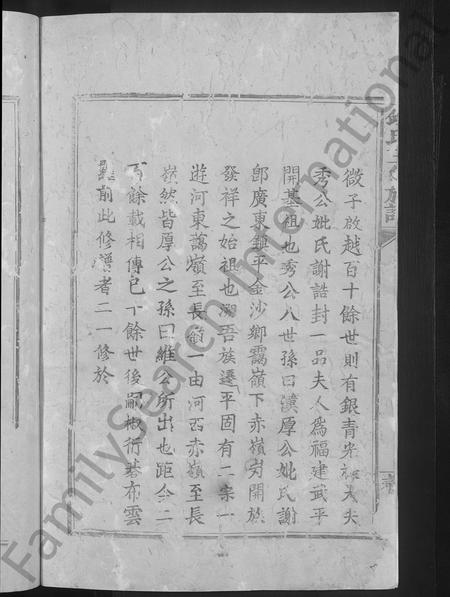 微子啟越百十餘世則有銀青光祿大夫
秀公妣氏謝誥封一品夫人爲福建武平
開基祖也秀公八世孫曰漢厚公妣氏謝
郎廣東鎮平金沙鄉靄嶺下赤嶺岃開族
發祥之始祖也溯吾族遷平固有二宗一
遊河東藹嶺至長嶺一由河西赤嶺至長
嶺然皆厚公之孫曰維公所出也距今二
百餘載相傳已十餘世後嗣椒衍碁布雲
前此修譜者二一修於
氏族譜
FamilySearch International